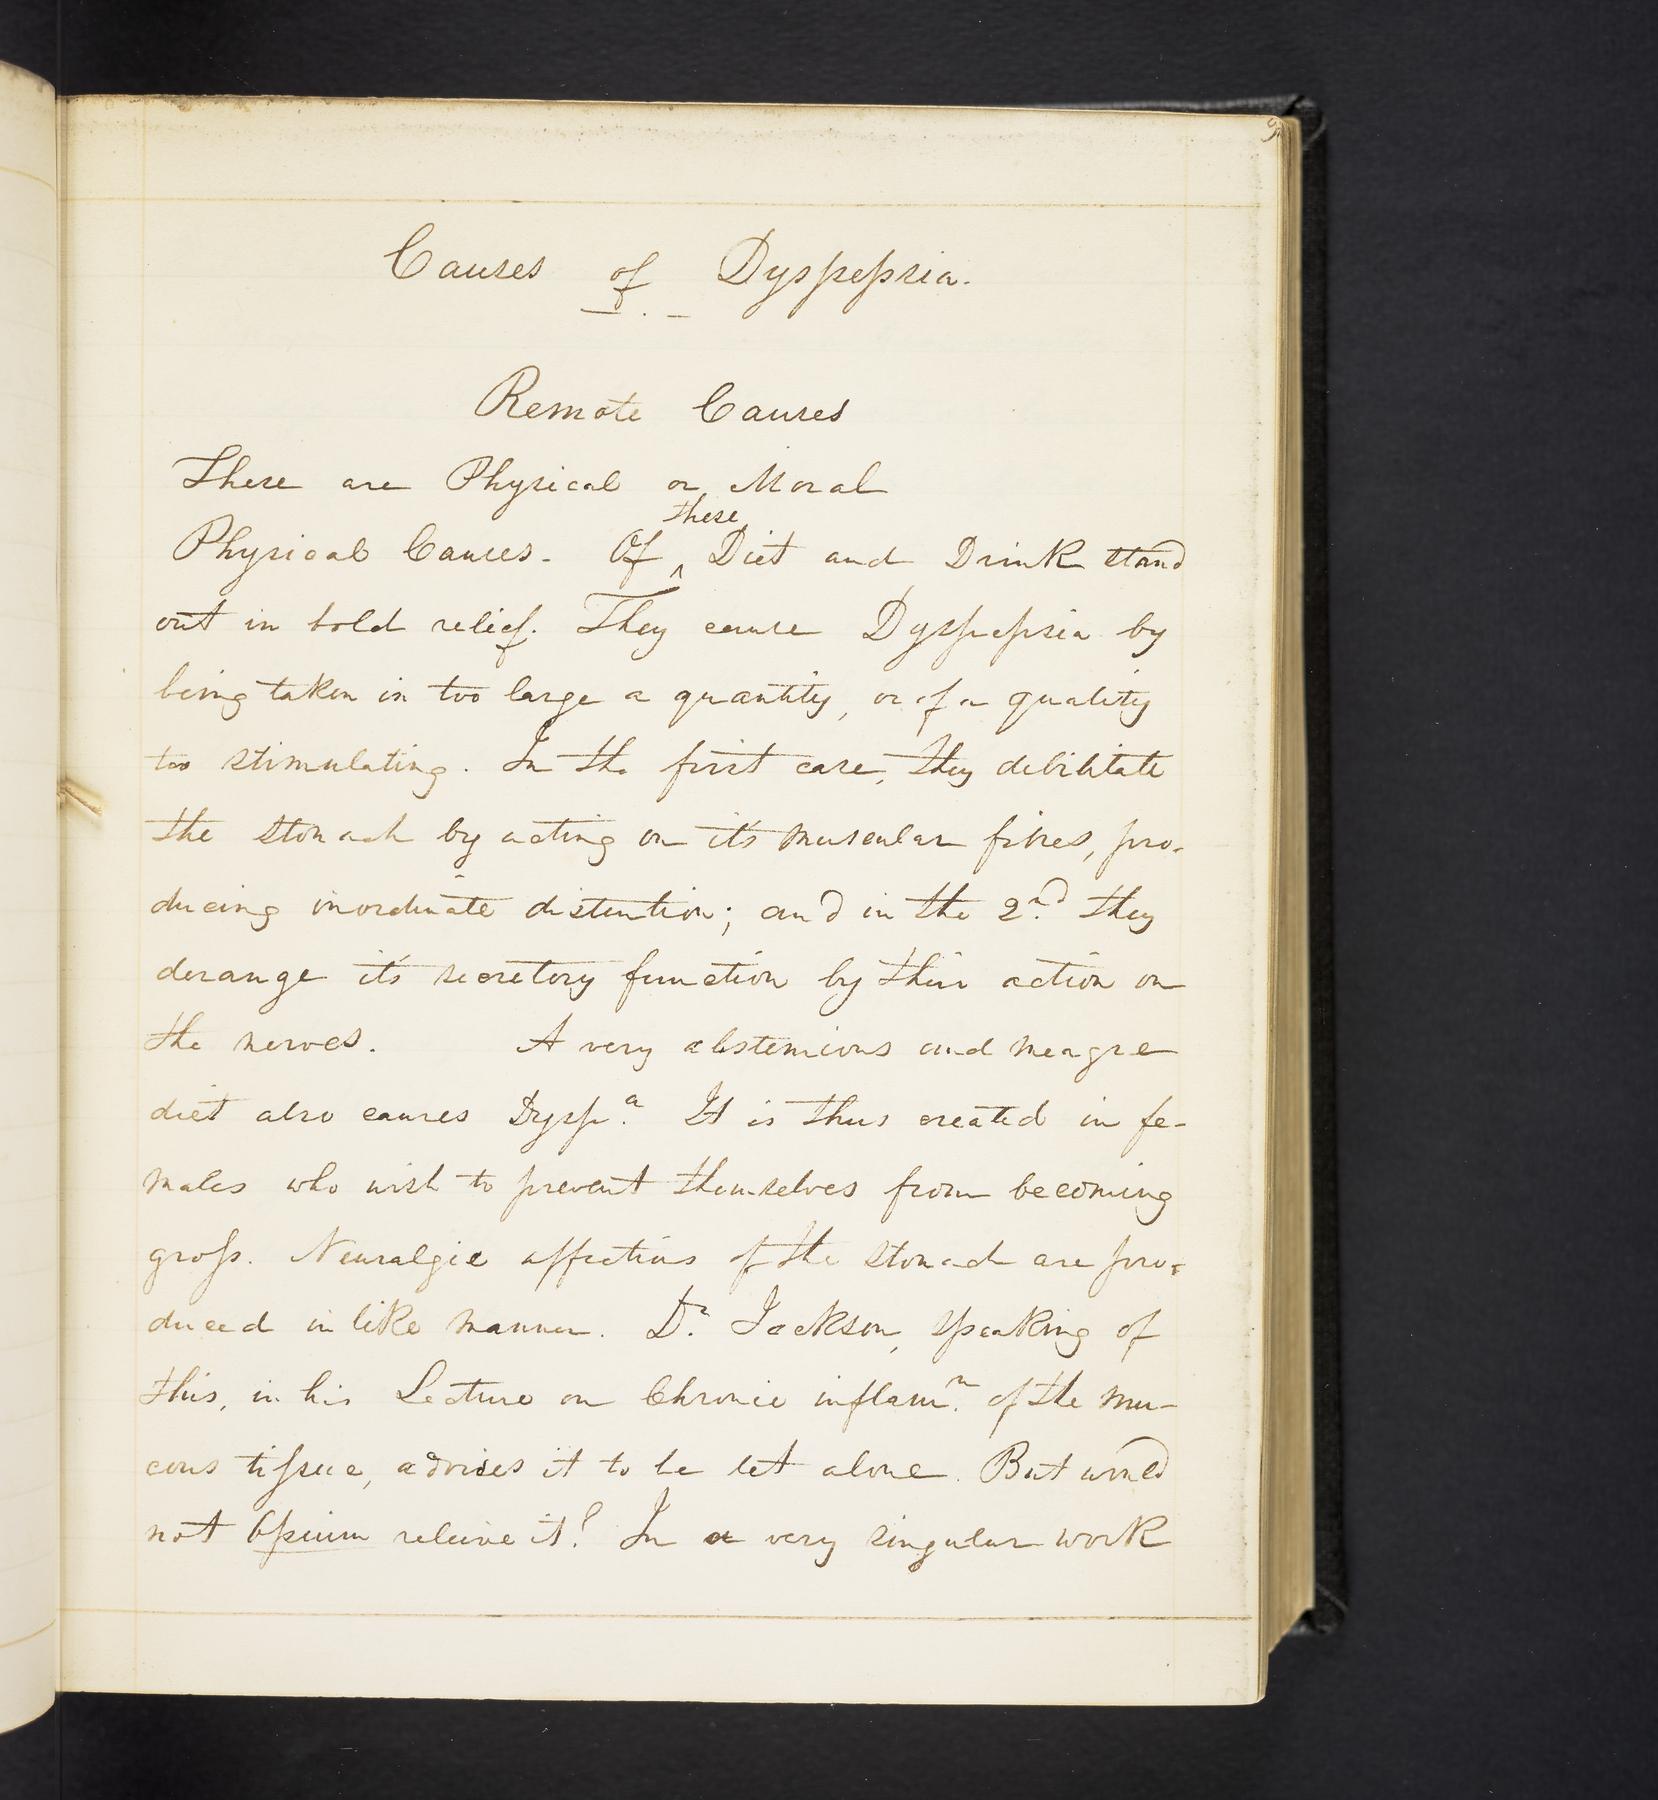 9
Causes of Dyspepsia.
Remote Causes
These are Physical or Moral
these
Physical Causes. Of ^ Diet and Drink stand
out in bold relief. They cause Dyspepsia by
being taken in too large a quantity, or of a quality
too stimulating. In the first case, they debilitate
the stomach by acting on it's muscular fibres, pro-
ducing inordinate distention; and in the 2nd. they
derange it's secretory function by their action on
the nerves. A very abstemious and meagre
diet also causes Dyspa. It is thus created in fe-
males who wish to prevent themselves from becoming
gross. Neuralgic affections of the stomach are pro-
duced in like manner. Dr. Jackson, speaking of
this, in his Lecture on Chronic inflamn. of the mu-
cous tissue, advises it to be let alone. But would
not Opium releive it? In a very singular work